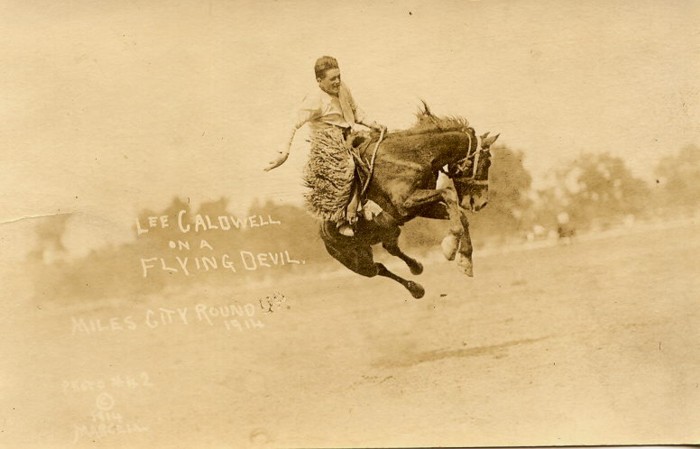 LEE CALDWELL
ON A
FLYING DEVIL.
MILES CITY ROUND
1914
PHOTO
©
1914
MARCELL